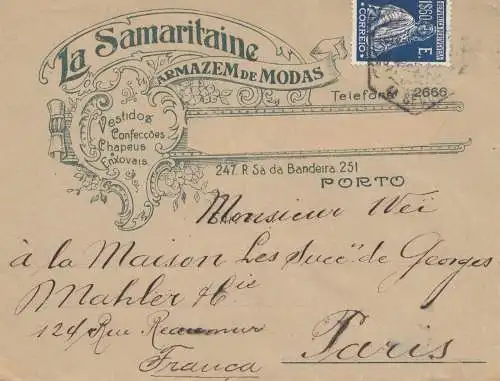 La Samaritaine
ARMAZEM DE MODAS
1$50 E.
CORREIO
Telefone 2666
Vestidos
Confecções
Chapeus
Enxovais
247. R. Sá da Bandeira. 251
PORTO
Monsieur Weï
à la Maison Les Succ.rs de Georges
Mahler & Cie
124 Rue Reaumur
Paris
França